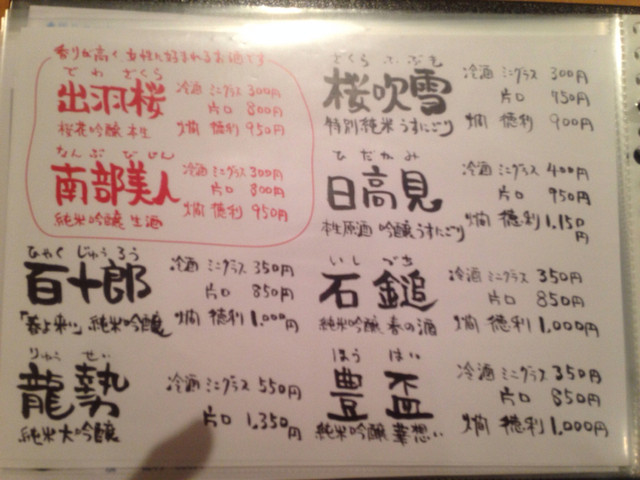 香りが高く、女性に好まれるお酒です
でわざくら
出羽桜 冷酒 ミニグラス 300円
片口 800円
桜花吟醸 本生 燗 徳利 950円
なんぶびじん
南部美人 冷酒 ミニグラス 300円
片口 800円
純米吟醸 生酒 燗 徳利 950円
ひゃくじゅうろう
百十郎 冷酒 ミニグラス 350円
片口 850円
「春よ来い」純米吟醸 燗 徳利 1,000円
りゅうせい
龍勢 冷酒 ミニグラス 550円
純米大吟醸 片口 1,350円
さくらふぶき
桜吹雪 冷酒 ミニグラス 300円
片口 750円
特別純米うすにごり 燗 徳利 900円
ひだかみ
日高見 冷酒 ミニグラス 400円
片口 950円
生原酒 吟醸うすにごり 燗 徳利 1,150円
いしづき
石鎚 冷酒 ミニグラス 350円
片口 850円
純米吟醸 春の酒 燗 徳利 1,000円
ほうはい
豊盃 冷酒 ミニグラス 350円
片口 850円
純米吟醸 華想い 燗 徳利 1,000円